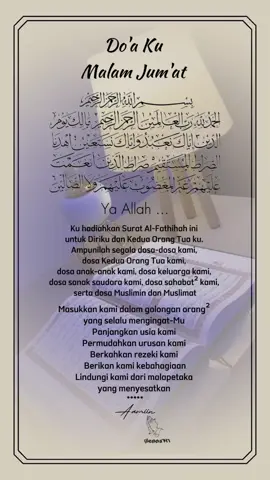 Do'a Ku
Malam Jum'at
بِسْمِ اللَّهِ الرَّحْمَنِ الرَّحِيمِ
الحَمْدُ لِلَّهِ رَبِّ العَالَمِينَ الرَّحْمَنِ الرَّحِيمِ مَالِكِ يَوْمِ
الدِّينِ إِيَّاكَ نَعْبُدُ وَإِيَّاكَ نَسْتَعِينُ اهْدِنَا
الصِّرَاطَ المُسْتَقِيمَ صِرَاطَ الَّذِينَ أَنْعَمْتَ
عَلَيْهِمْ غَيْرِ المَغْضُوبِ عَلَيْهِمْ وَلَا الضَّالِّينَ
Ya Allah ...
Ku hadiahkan Surat Al-Fathihah ini
untuk Diriku dan Kedua Orang Tua ku.
Ampunilah segala dosa-dosa kami,
dosa Kedua Orang Tua kami,
dosa anak-anak kami, dosa keluarga kami,
dosa sanak saudara kami, dosa sahabat² kami,
serta dosa Muslimin dan Muslimat
Masukkan kami dalam golongan orang²
yang selalu mengingat-Mu
Panjangkan usia kami
Permudahkan urusan kami
Berkahkan rezeki kami
Berikan kami kebahagiaan
Lindungi kami dari malapetaka
yang menyesatkan
*****
Aamiin